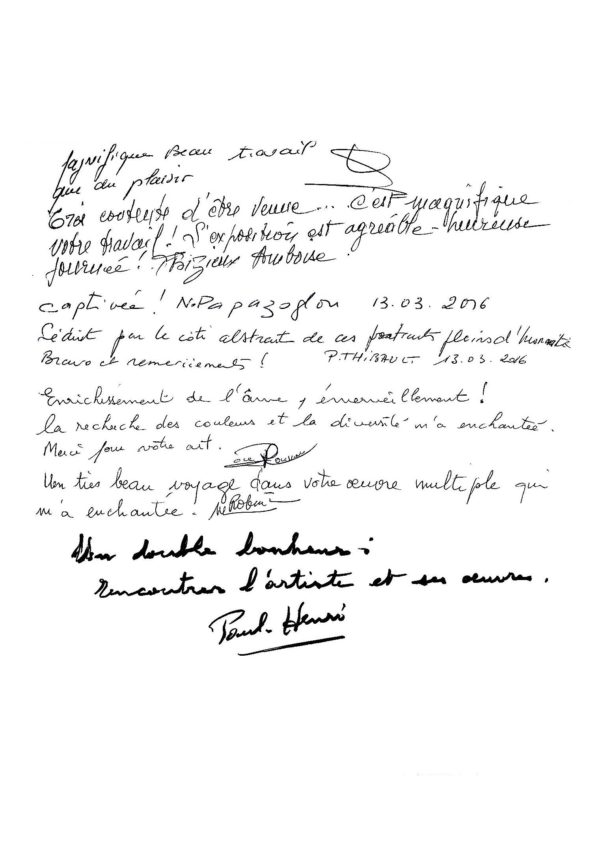 Magnifique Beau travail
que du plaisir
Très contente d'être venue... C'est magnifique
votre travail! L'exposition est agréable - heureuse
journée! Amboise.
Captivée! N. Papazoglou 13.03.2016
Séduit par le côté abstrait de ces portraits pleins d'humanité
Bravo et remerciements! P. THIBAULT 13.03.2016
Enrichissement de l'âme, émerveillement!
la recherche des couleurs et la diversité m'a enchantée.
Merci pour votre art.
Un très beau voyage dans votre œuvre multiple qui
m'a enchantée. Robin
Un double bonheur :
rencontrer l'artiste et ses œuvres.
Paul-Henri